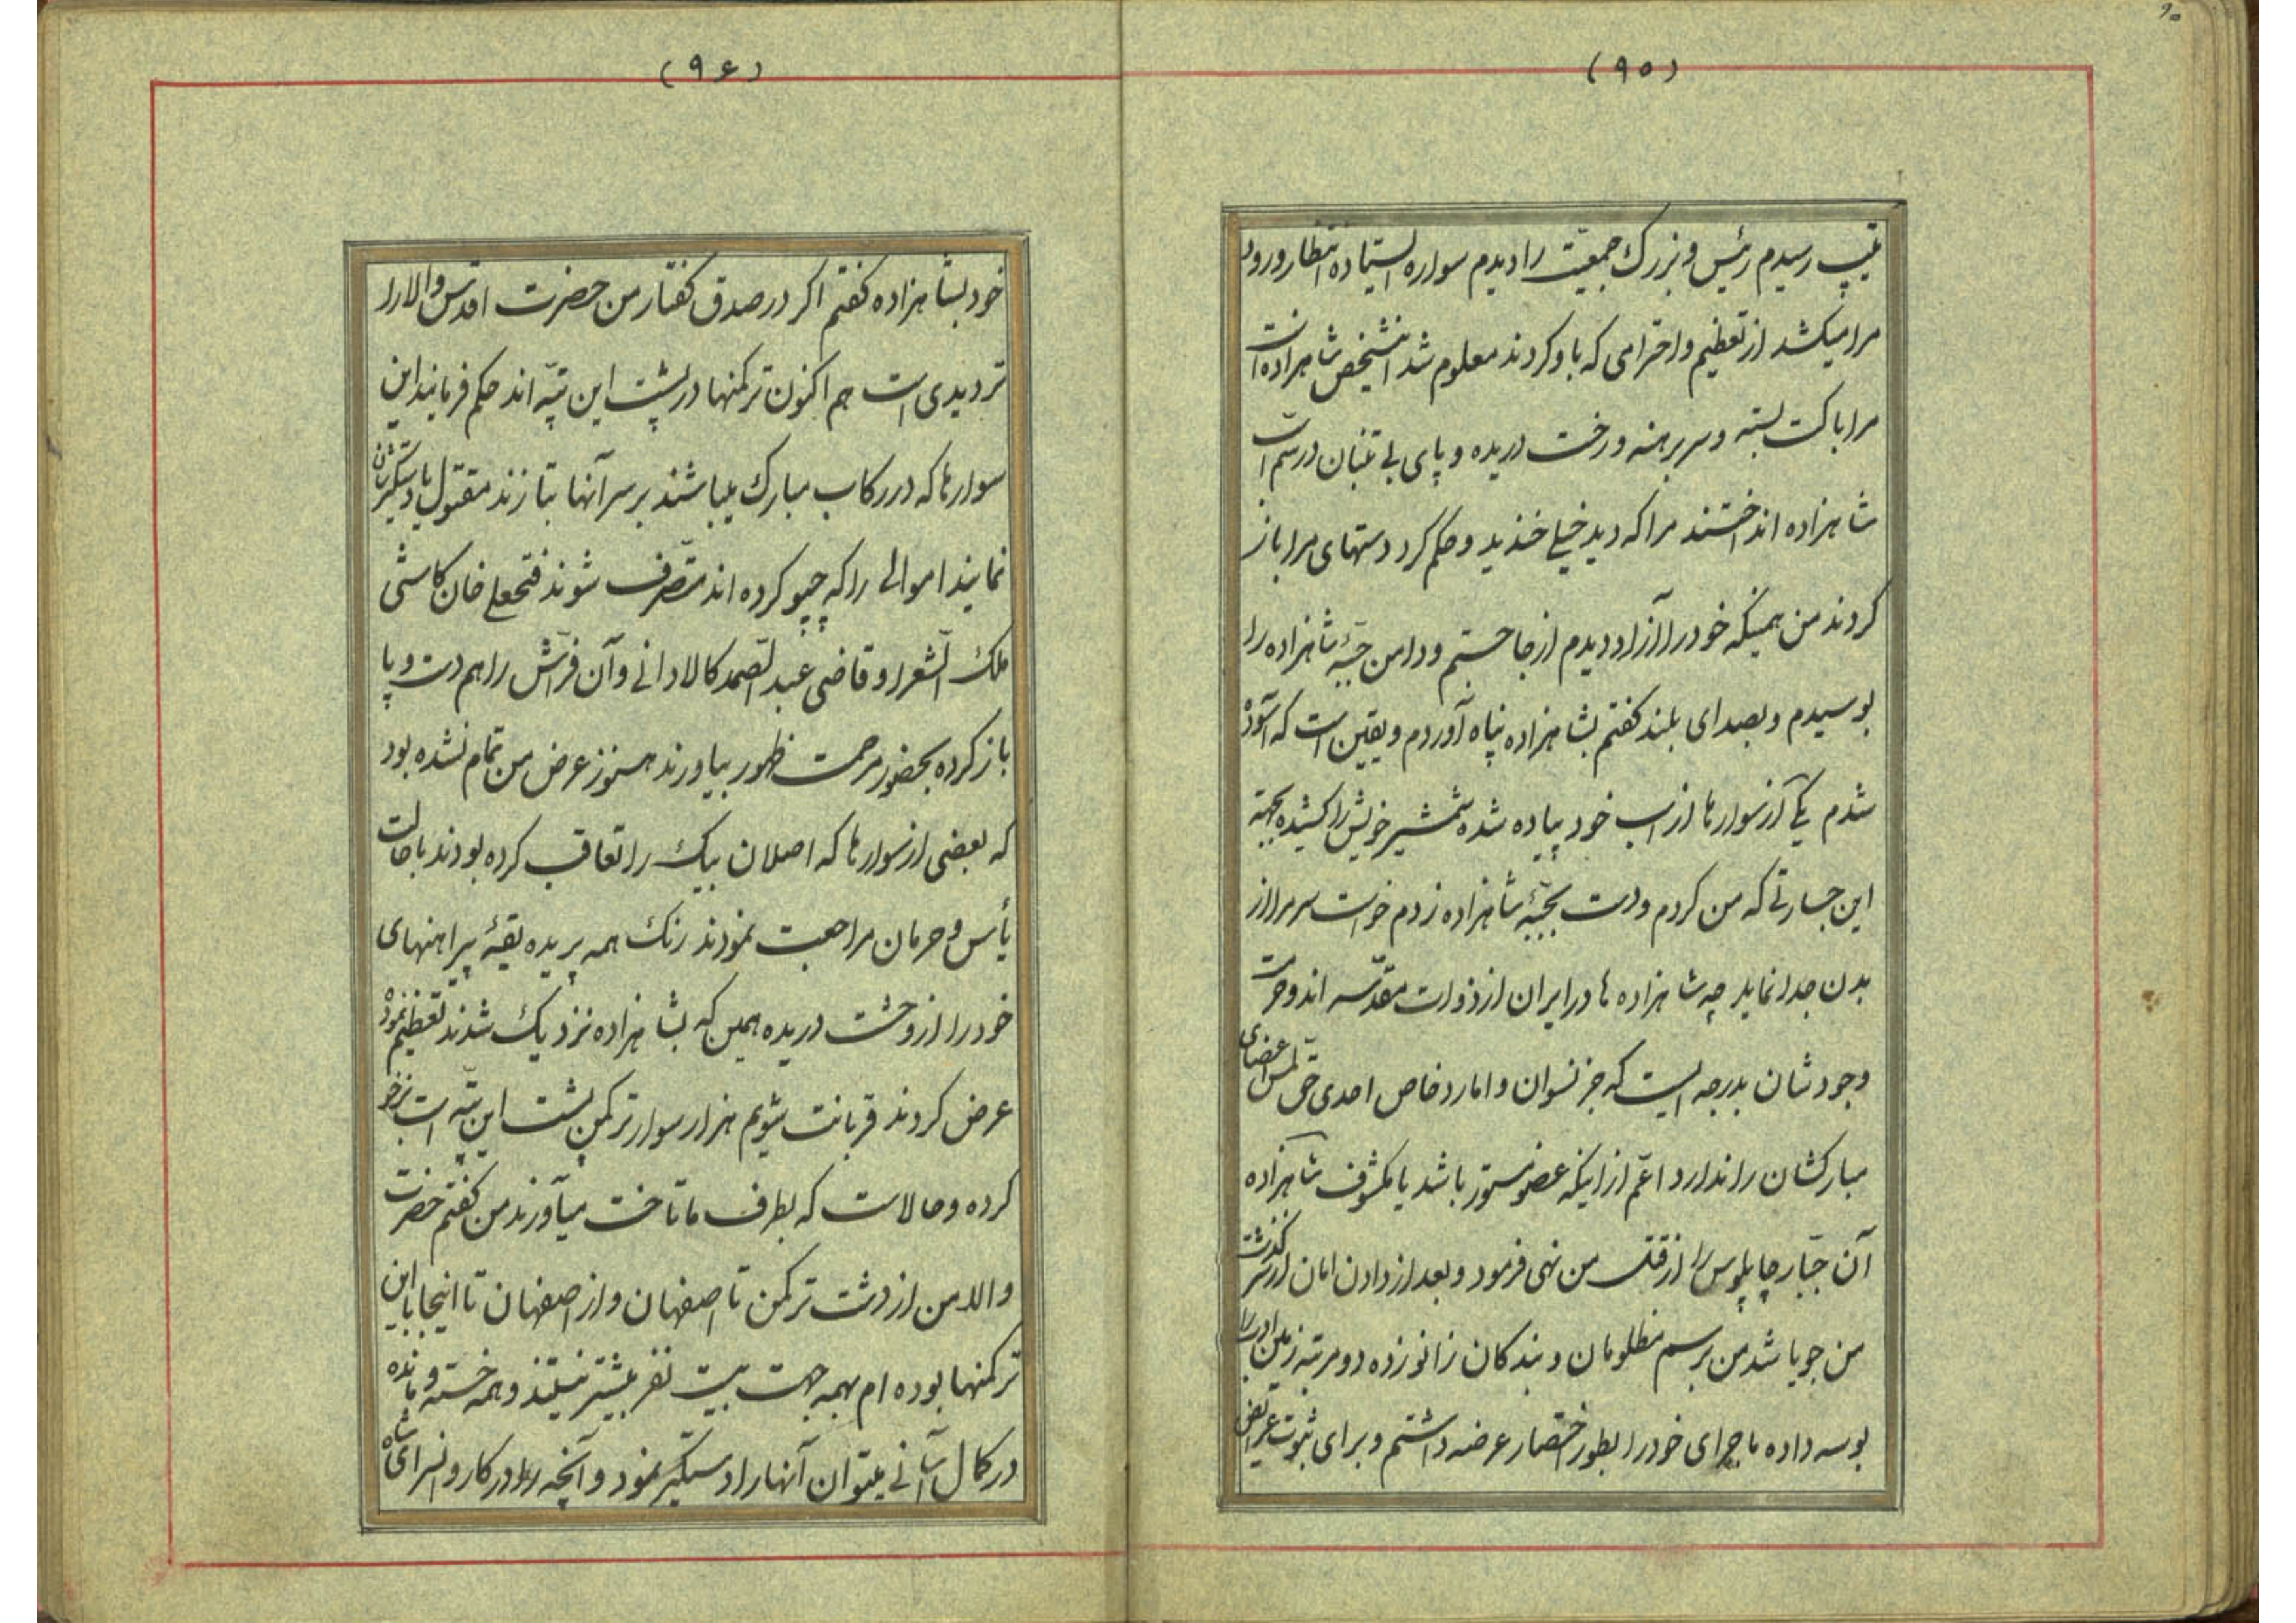 ۹۰
(۹۵)
بتیپ رسیدم رئیس و بزرک جمعیّت را دیدم سواره ایستاده انتظار ورود
مرا میکشد از تعظیم و احترامی که باو کردند معلوم شد اینشخص شاهزاده است
مرا با کت بسته و سر برهنه و رخت دریده و پای بی تنبان در سم اسب
شاهزاده انداختند مرا که دید خیلی خندید و حکم کرد دستهای مرا باز
کردند من همینکه خود را آزاد دیدم از جا جستم و دامن جبّهٔ شاهزاده را
بوسیدم و بصدای بلند کفتم بشاهزاده پناه آوردم و یقین است که آسوده
شدم یکی از سوارها از اسب خود پیاده شده شمشیر خویش را کشیده بجهته
این جسارتی که من کردم و دست بجبّهٔ شاهزاده زدم خواست سر مرا از
بدن جدا نماید چه شاهزاده ها در ایران از ذوات مقدّسه اند و حرمت
وجودشان بدرجه ایست که جز نسوان و امارد خاص احدی حق لمس اعضای
مبارکشان را ندارد اعّم از اینکه عضو مستور باشد یا مکشوف شاهزاده
آن جبّار چاپلوس را از قتل من نهی فرمود و بعد از دادن امان از سرکذشت
من جویا شد من برسم مظلومان و بندکان زانو زده دو مرتبه زمین ادب را
بوسه داده ماجرای خود را بطور اختصار عرضه داشتم و برای ثبوت عرایض
(۹۶)
خود بشاهزاده کفتم اکر در صدق کفتار من حضرت اقدس والا را
تردیدی است هم اکنون ترکمنها در پشت این تپّه اند حکم فرمایند این
سوارها که در رکاب مبارک میباشند بر سر آنها بتازند مقتول یا دستکیرشان
نمایند اموالی را که چپو کرده اند متصّرف شوند فتحعلی خان کاشی
ملک الشّعرا و قاضی عبد الصّمد کالادانی و آن فرّاش را هم دست و پا
باز کرده بحضور مرحمت ظهور بیاورند هنوز عرض من تمام نشده بود
که بعضی از سوارها که اصلان بیک را تعاقب کرده بودند با حالت
یأس و حرمان مراجعت نمودند رنک همه پریده یقهٔ پیراهنهای
خود را از وحشت دریده همین که بشاهزاده نزدیک شدند تعظیم نموده
عرض کردند قربانت شویم هزار سوار ترکمن پشت این تپّه است بزخو
کرده و حالاست که بطرف ما تاخت میآورند من کفتم حضرت
والا من از دشت ترکمن تا اصفهان و از اصفهان تا اینجا با این
ترکمنها بوده ام بهمه جهت بیست نفر بیشتر نیستند و همه خسته و مانده
در کمال آسانی میتوان آنها را دستکیر نمود و آنچه را در کاروانسرای شاه